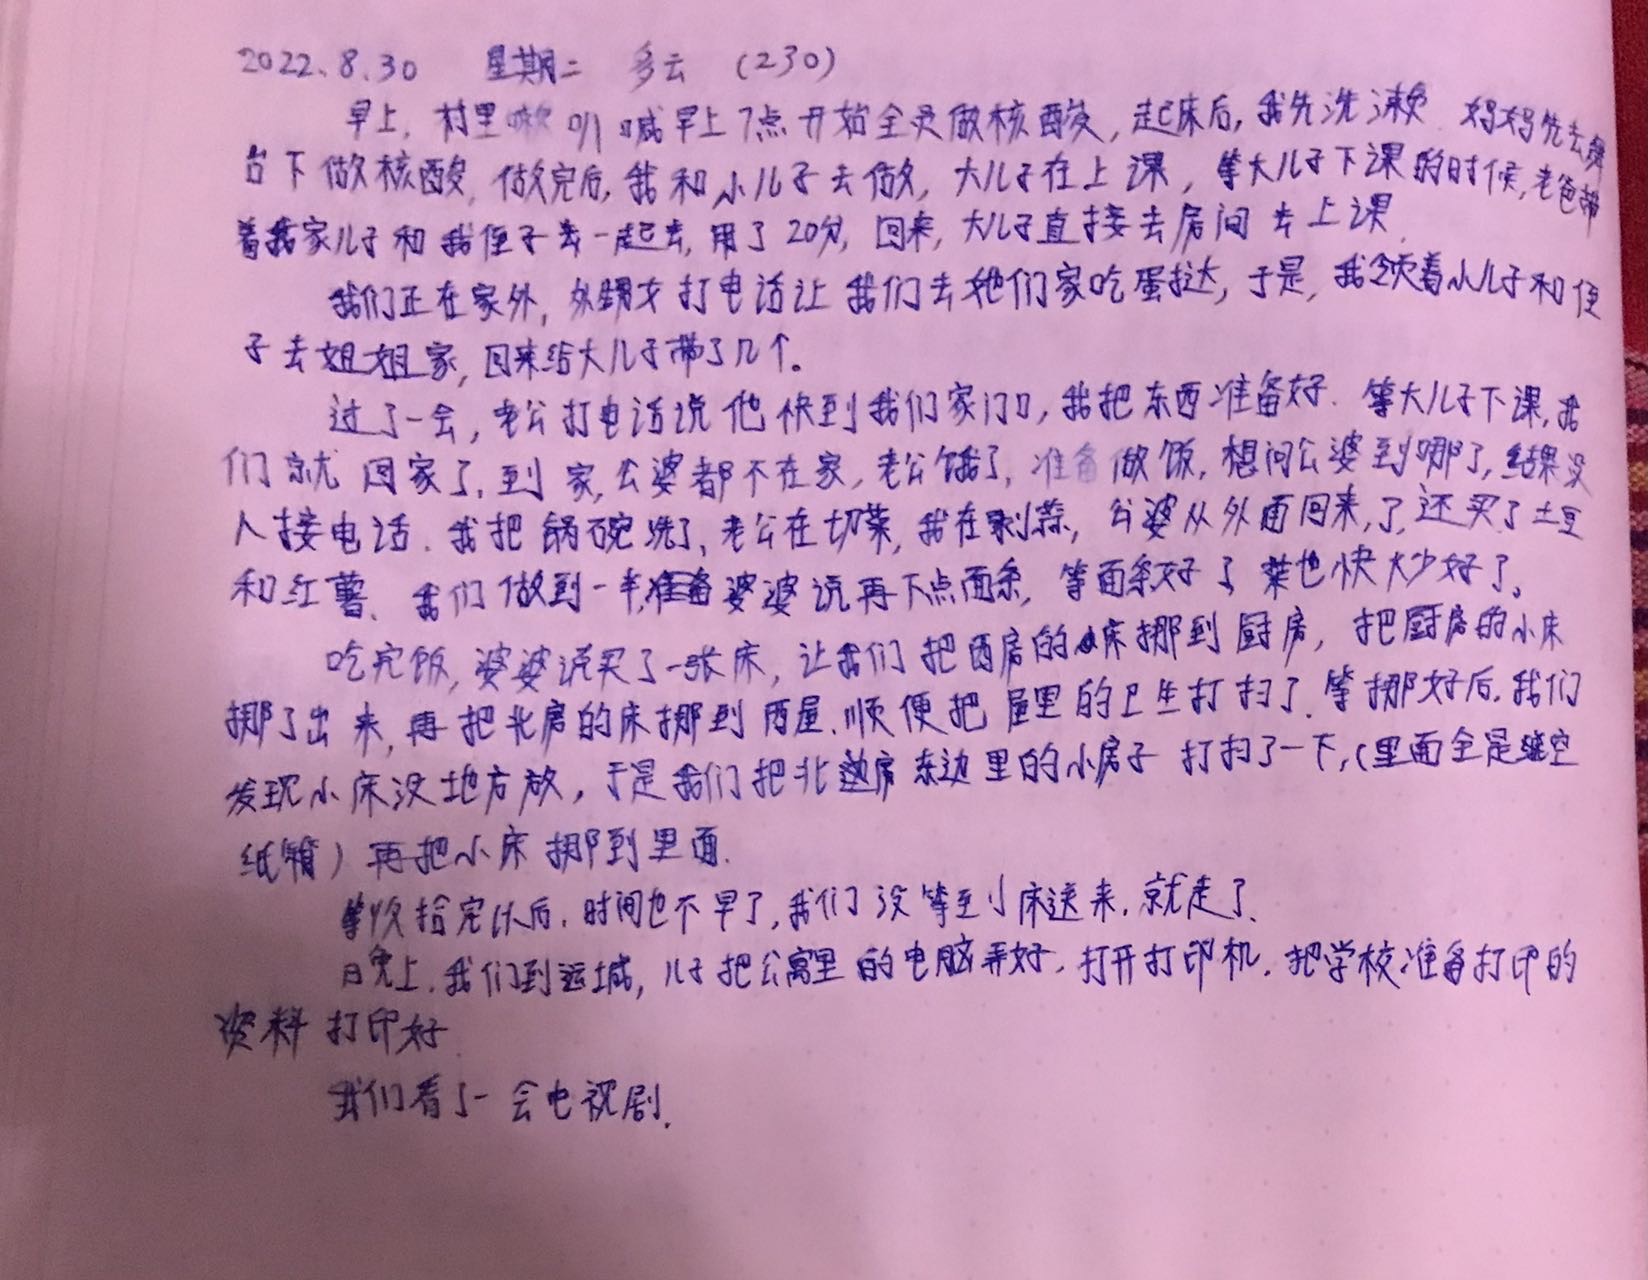 2022.8.30 星期二 多云 (230)
早上,村里喇叭喊早上7点开始全员做核酸,起床后,我先洗漱 妈妈先去舞
台下做核酸,做完后,我和小儿子去做,大儿子在上课,等大儿子下课的时候,老爸带
着我家儿子和我侄子去一起去,用了20分,回来,大儿子直接去房间去上课.
我们正在家外,外甥女打电话让我们去她们家吃蛋挞,于是,我领着小儿子和侄
子去姐姐家,回来给大儿子带了几个。
过了一会,老公打电话说他快到我们家门口,我把东西准备好.等大儿子下课,我
们就回家了,到家,公婆都不在家,老公饿了,准备做饭,想问公婆到哪了,结果没
人接电话.我把锅碗洗了,老公在切菜,我在剥蒜,公婆从外面回来,了,还买了土豆
和红薯、我们做到一半,婆婆说再下点面条,等面条好了 菜也快炒好了。
吃完饭,婆婆说买了一张床,让我们把西房的床挪到厨房,把厨房的小床
挪了出来,再把北房的床挪到西屋.顺便把屋里的卫生打扫了.等挪好后.我们
发现小床没地方放,于是我们把北边房东边里的小房子打扫了一下,(里面全是空
纸箱)再把小床挪到里面.
等收拾完以后.时间也不早了,我们没等到小床送来,就走了.
晚上.我们到运城,儿子把公寓里的电脑弄好.打开打印机.把学校准备打印的
资料打印好.
我们看了一会电视剧.